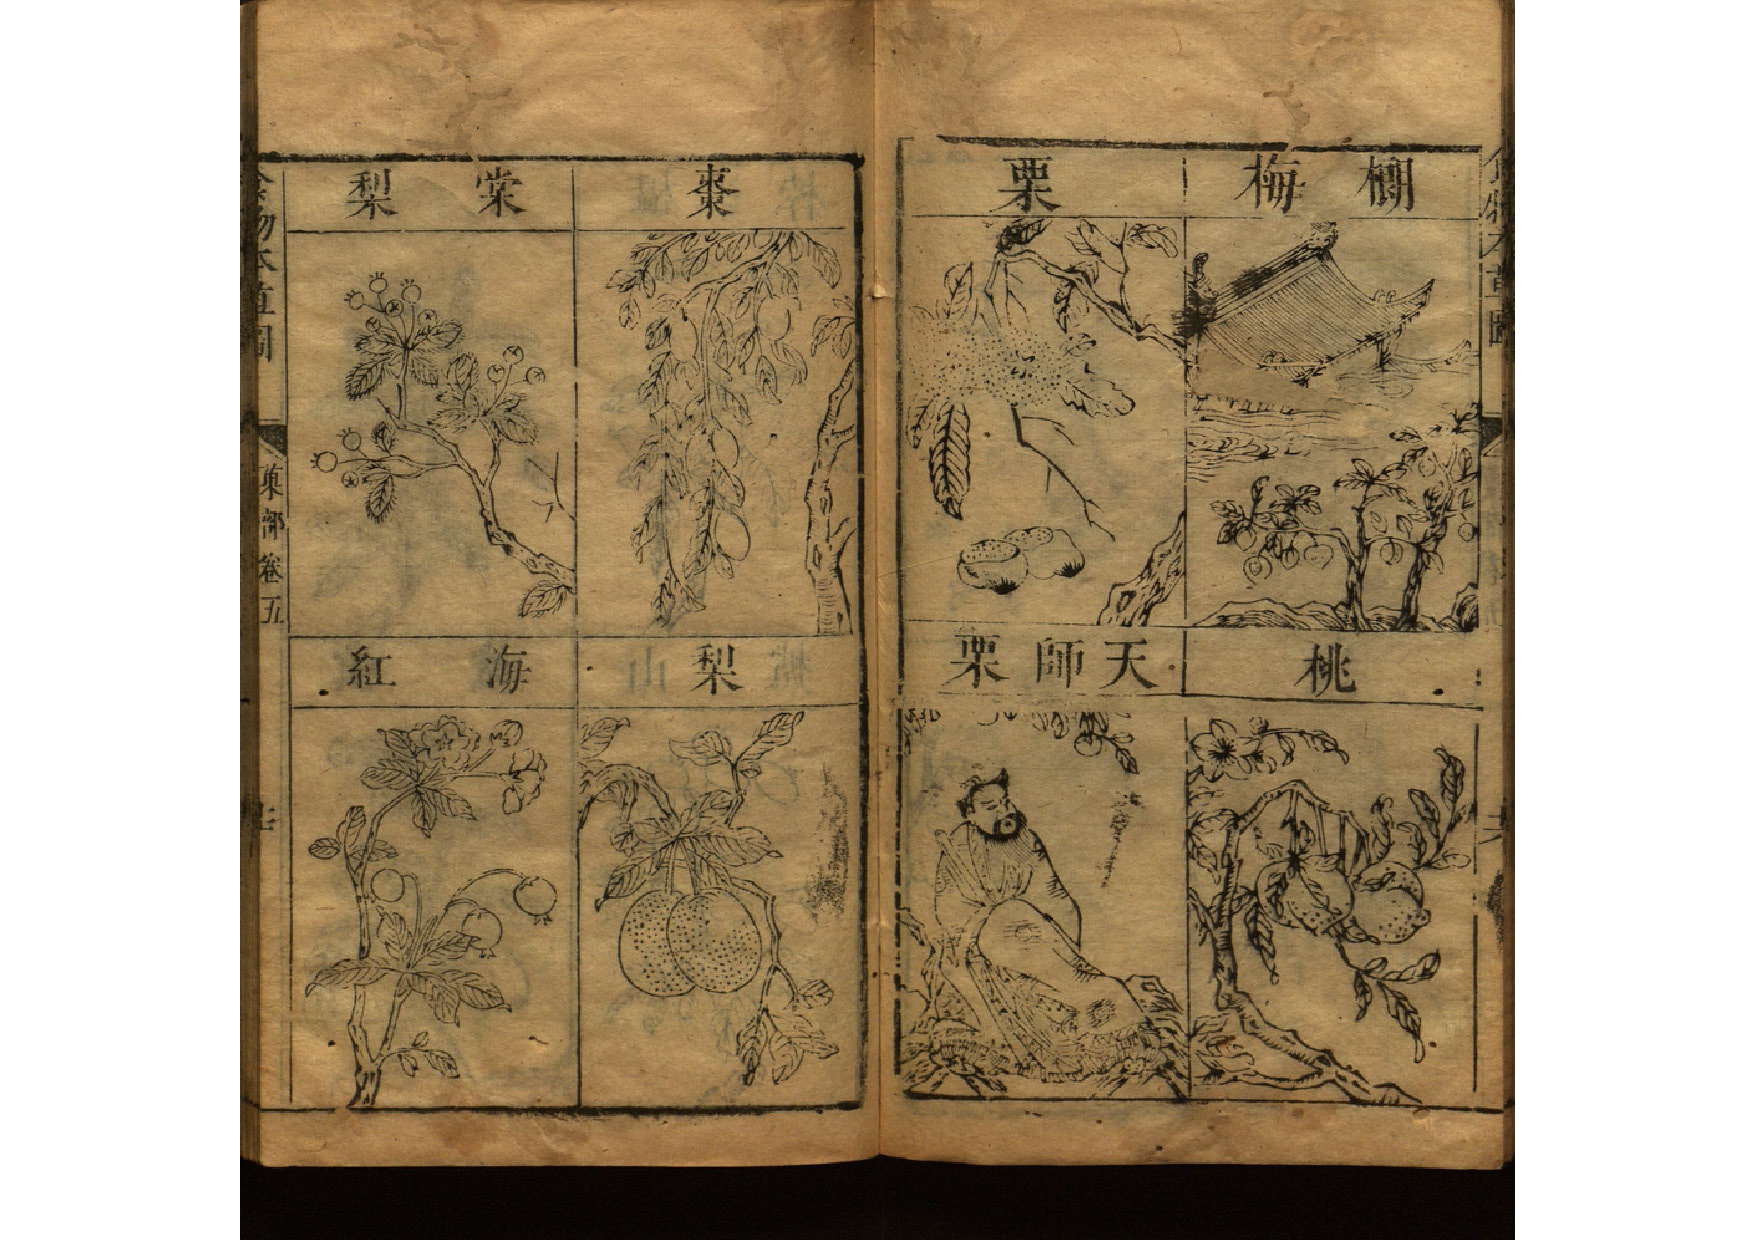 食物本草圖
榔梅
栗
桃
天師栗
棗
棠梨
梨
海紅
食物本草圖
菓部卷五
七